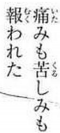 痛みも苦しみも
報われた